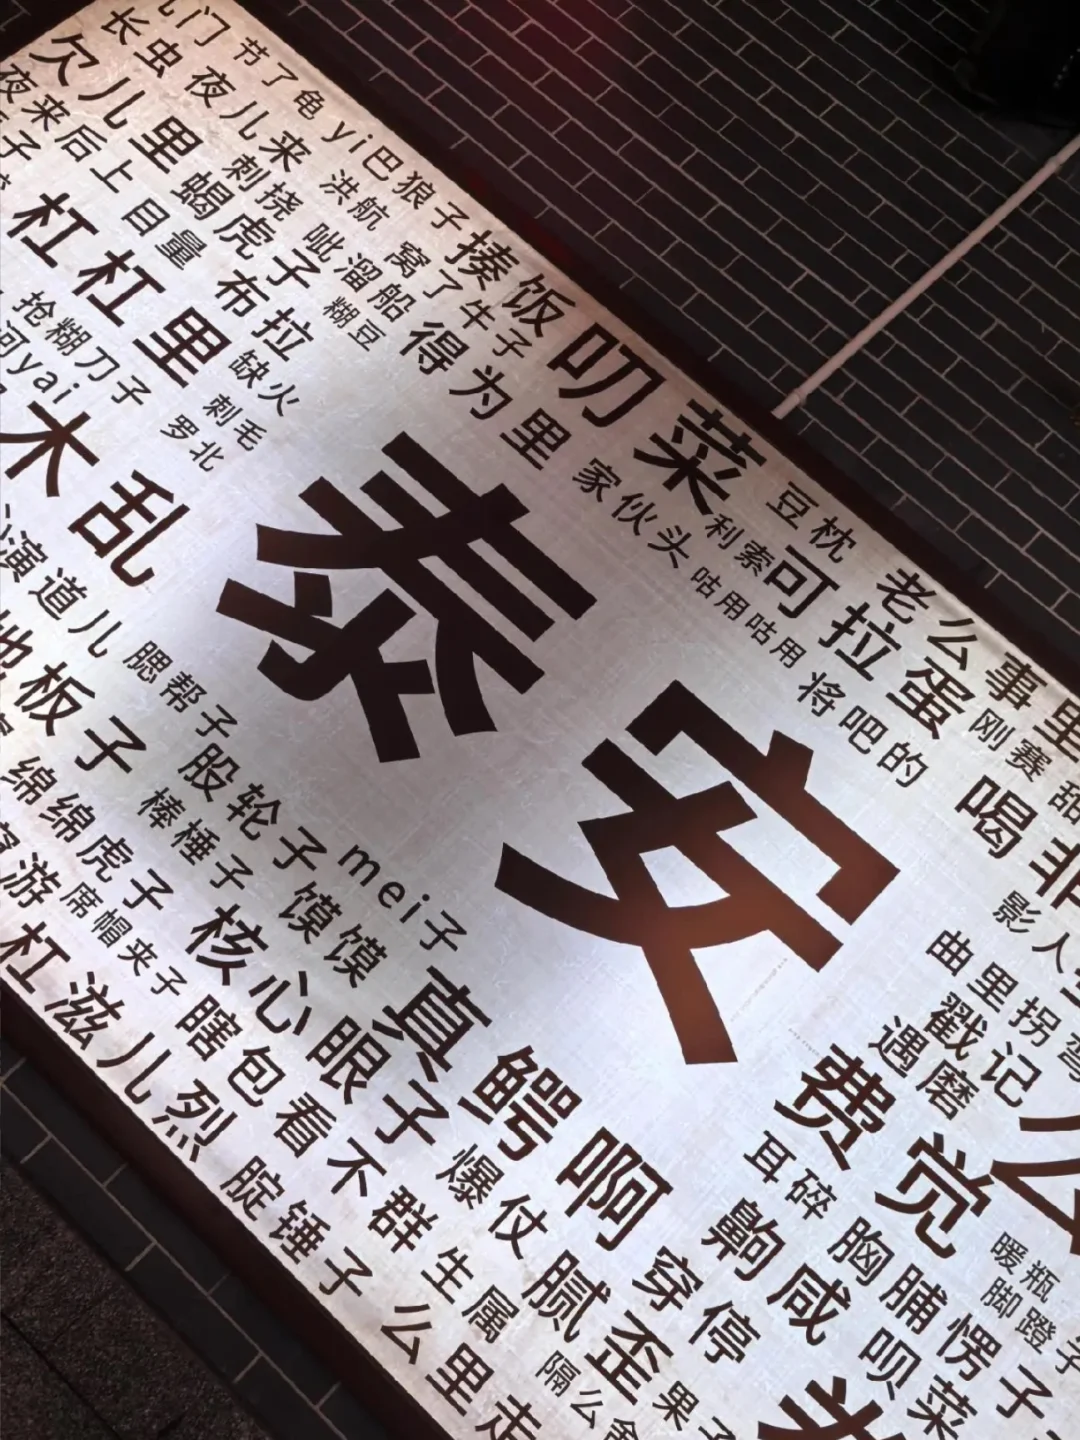 儿门 节了龟 yi巴狼子 揍饭
长虫 夜儿来 洪航 窝了牛子 叨菜 豆枕 老么事里
欠儿里 刺挠 呲溜船 得为里 家伙头 利索 可拉蛋 刚赛甜
夜来后上 蝎虎子 糊豆 咕用咕用 将吧的 喝非
目量 布拉
杠杠里 缺火
抢糊刀子 刺毛
yai 罗北
木乱
泰安
演道儿 腮帮子
地板子 股轮子 mei子
绵绵虎子 棒棰子 馍馍 真鳄啊
席帽夹子 核心眼子 爆仗 穿停
杠滋儿烈 瞎包看不群 生属 腻歪 果子
腚锤子 么里走 隔么舍
影人
曲里拐弯
戳记
遇磨 费觉 么
耳碎 胸脯 愣子 暖瓶
齁咸 呗菜 脚蹬子